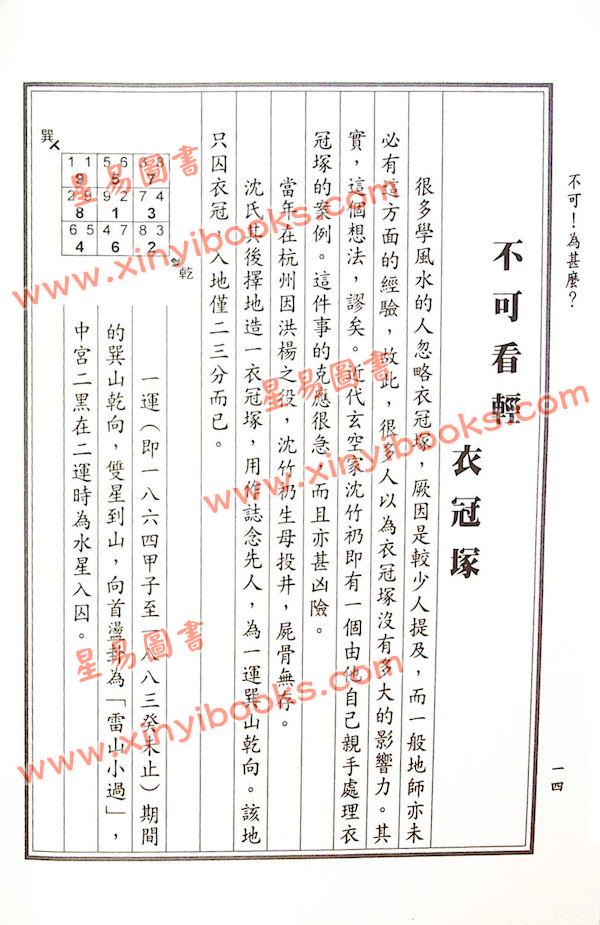 不可！為甚麼？
一四
不可看輕
衣冠塚
很多學風水的人忽略衣冠塚，厥因是較少人提及，而一般地師亦未
必有這方面的經驗，故此，很多人以為衣冠塚沒有多大的影響力。其
實，這個想法，謬矣。近代玄空家沈竹礽即有一個由他自己親手處理衣
冠塚的案例。這件事的克應很急，而且亦甚凶險。
當年在杭州因洪楊之役，沈竹礽生母投井，屍骨無存。
沈氏其後擇地造一衣冠塚，用作誌念先人，為一運巽山乾向。該地
只囚衣冠，入地僅二三分而已。
巽
1 1 5 6 3 8
9 5 7
2 9 9 2 7 4
8 1 3
6 5 4 7 8 3
4 6 2
乾
一運（即一八六四甲子至一八八三癸未止）期間
的巽山乾向，雙星到山，向首盪卦為「雷山小過」，
中宮二黑在二運時為水星入囚。
星易圖書
www.xinyibooks.com
星易圖書
www.xinyibooks.com
星易圖書
www.xinyibooks.com